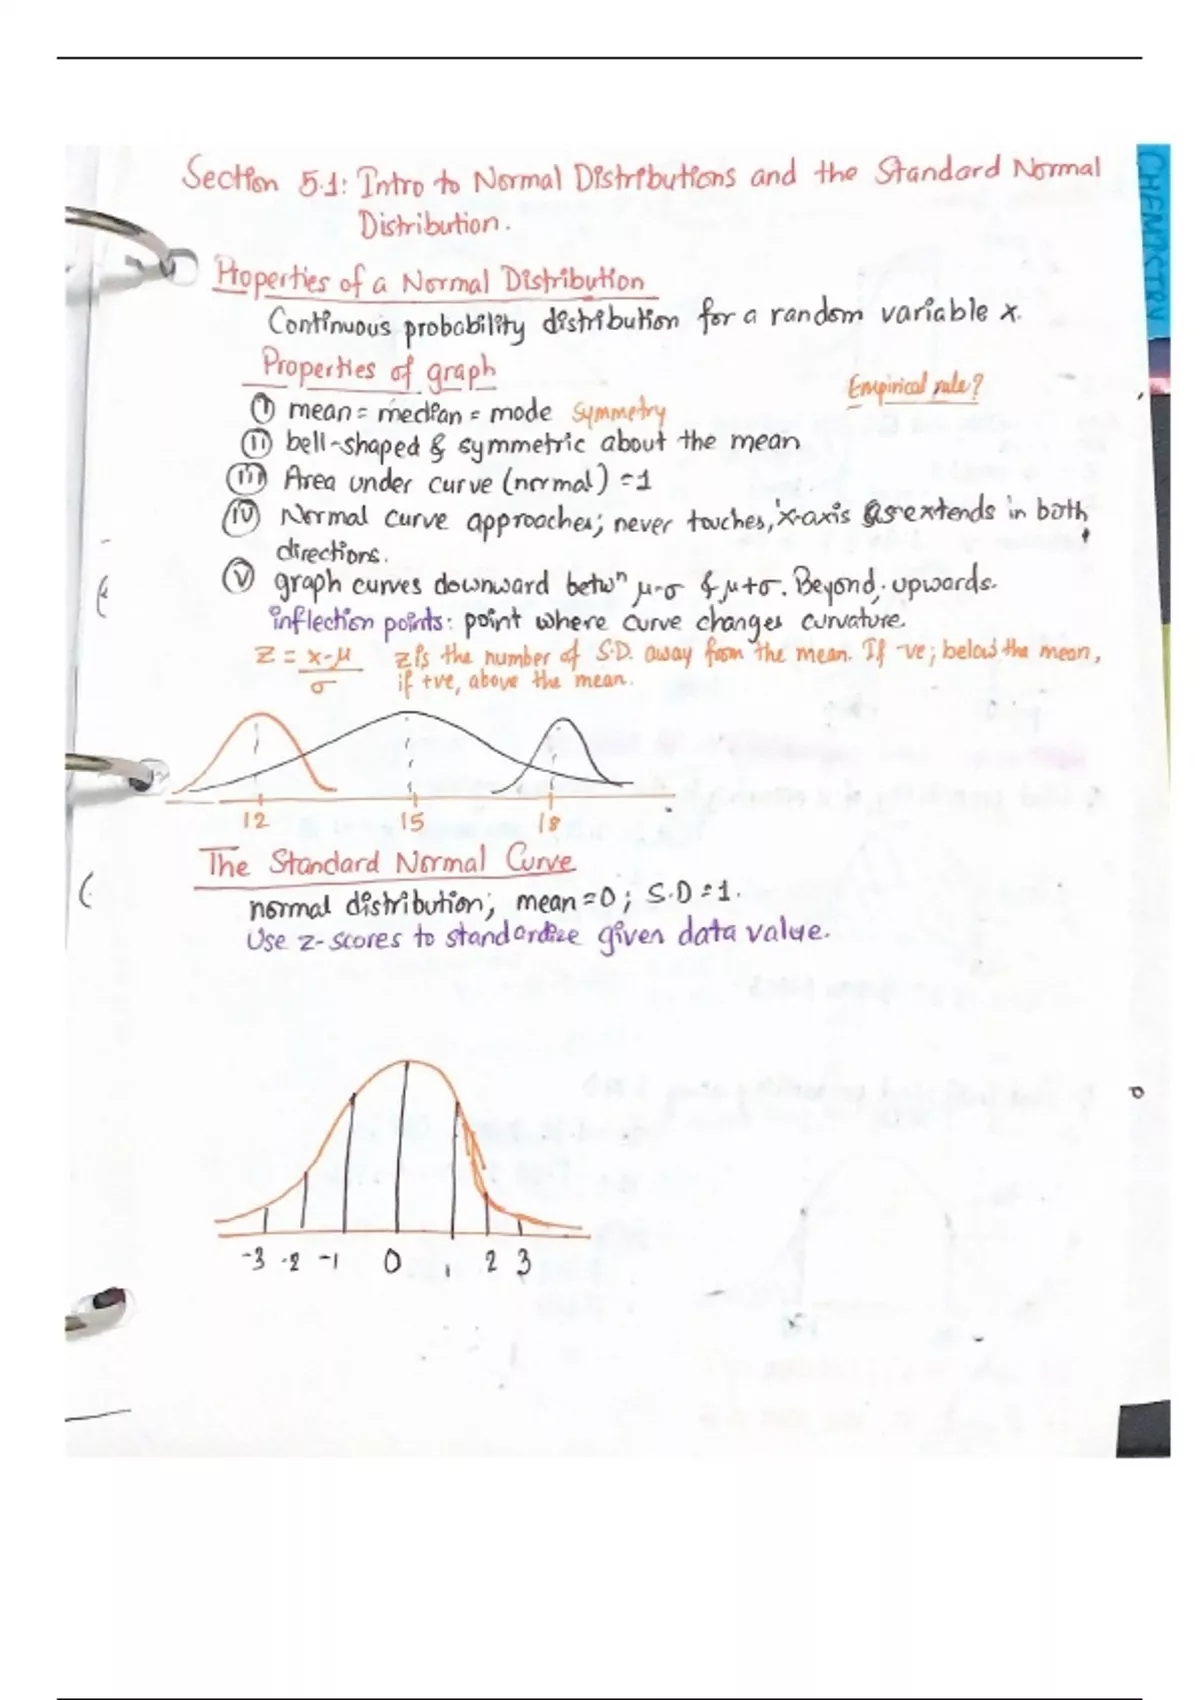 Section 5.1: Intro to Normal Distributions and the Standard Normal
Distribution.
Properties of a Normal Distribution
Continuous probability distribution for a random variable x.
Properties of graph
Empirical rule?
(i) mean = median = mode symmetry
(ii) bell-shaped & symmetric about the mean
(iii) Area under curve (normal) = 1
(iv) Normal curve approaches; never touches, x-axis as extends in both
directions.
(v) graph curves downward betwⁿ μ-σ & μ+σ. Beyond, upwards.
inflection points: point where curve changes curvature.
z = x-μ / σ z is the number of S.D. away from the mean. If -ve; below the mean,
if +ve, above the mean.
12 15 18
The Standard Normal Curve
normal distribution; mean = 0; S.D = 1.
Use z-scores to standardize given data value.
-3 -2 -1 0 1 2 3
CHEMISTRY